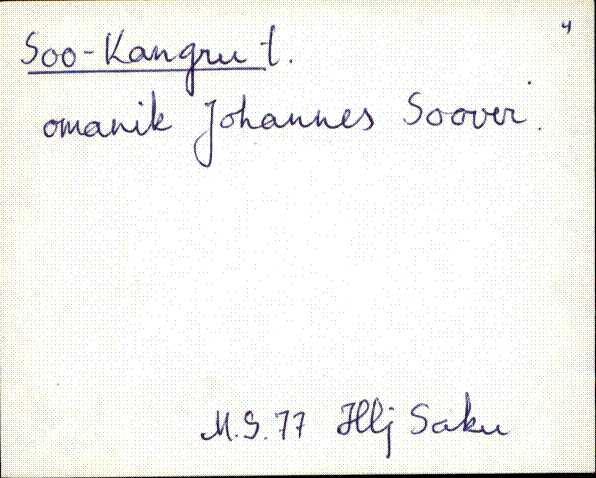 4
Soo-Kangru t.
omanik Johannes Soover.
M.S.77 Hlj Saku